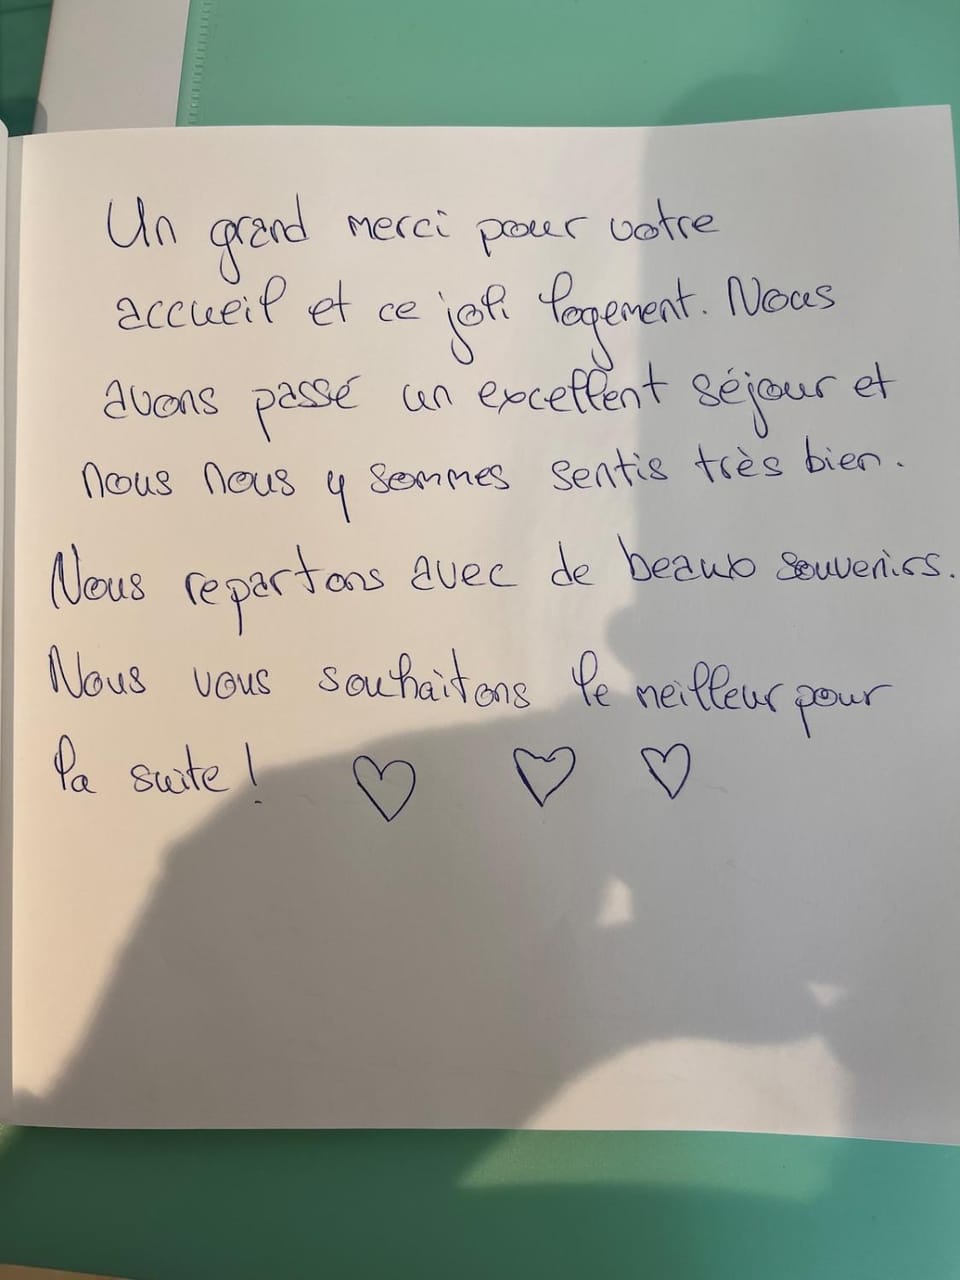 Un grand merci pour votre
accueil et ce joli logement. Nous
avons passé un excellent séjour et
nous nous y sommes sentis très bien.
Nous repartons avec de beaux souvenirs.
Nous vous souhaitons le meilleur pour
la suite ! ♡ ♡ ♡